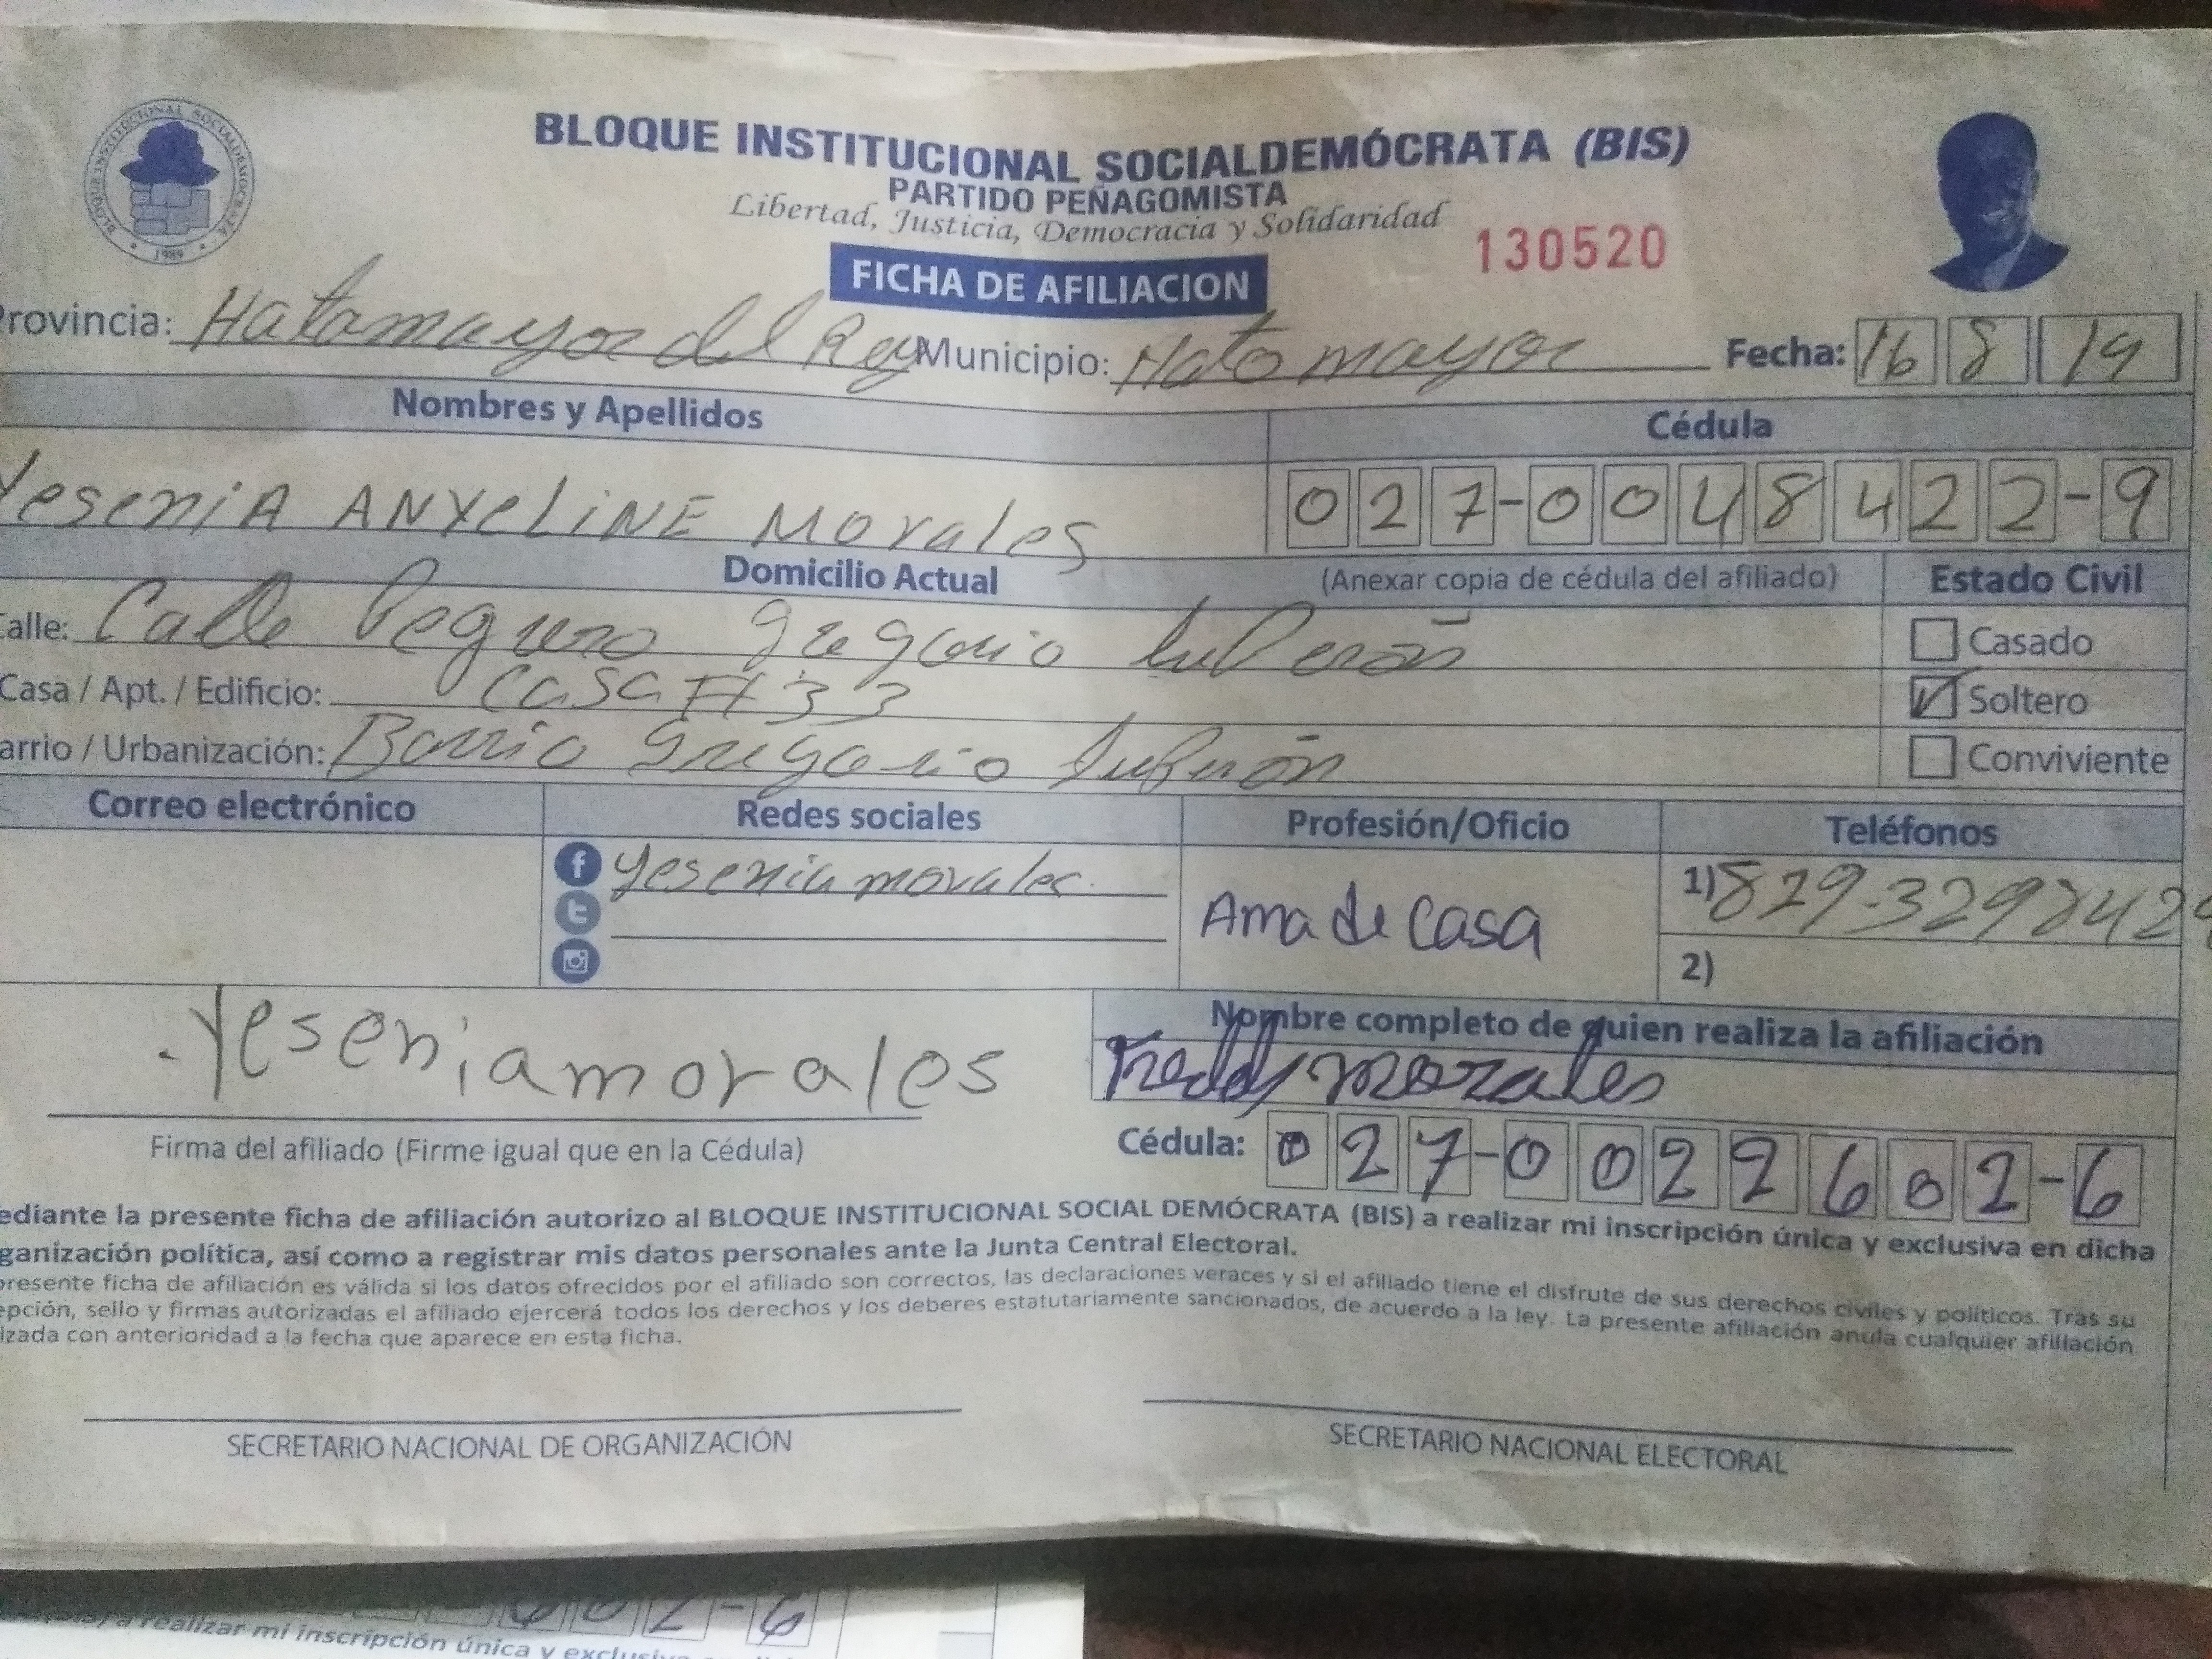 BLOQUE INSTITUCIONAL SOCIALDEMÓCRATA
1989
BLOQUE INSTITUCIONAL SOCIALDEMÓCRATA (BIS)
PARTIDO PEÑAGOMISTA
Libertad, Justicia, Democracia y Solidaridad
130520
FICHA DE AFILIACION
Provincia: Hatomayor del Rey Municipio: Hato mayor Fecha: 16 8 19
Nombres y Apellidos Cédula
Yesenia ANYeLiNE Morales 027-0048422-9
Domicilio Actual (Anexar copia de cédula del afiliado) Estado Civil
Calle: Calle Peguero Gregorio Luperón Casado
Casa / Apt. / Edificio: Casa # 33 Soltero
arrio / Urbanización: Barrio Gregorio Luperón Conviviente
Correo electrónico Redes sociales Profesión/Oficio Teléfonos
yesenia morales Ama de Casa 1) 829-329842
2)
Yesenia morales
Nombre completo de quien realiza la afiliación
Freddy morales
Firma del afiliado (Firme igual que en la Cédula) Cédula: 027-0022602-6
ediante la presente ficha de afiliación autorizo al BLOQUE INSTITUCIONAL SOCIAL DEMÓCRATA (BIS) a realizar mi inscripción única y exclusiva en dicha
ganización política, así como a registrar mis datos personales ante la Junta Central Electoral.
presente ficha de afiliación es válida si los datos ofrecidos por el afiliado son correctos, las declaraciones veraces y si el afiliado tiene el disfrute de sus derechos civiles y políticos. Tras su
epción, sello y firmas autorizadas el afiliado ejercerá todos los derechos y los deberes estatutariamente sancionados, de acuerdo a la ley. La presente afiliación anula cualquier afiliación
izada con anterioridad a la fecha que aparece en esta ficha.
SECRETARIO NACIONAL DE ORGANIZACIÓN SECRETARIO NACIONAL ELECTORAL
602-6
a realizar mi inscripción única y